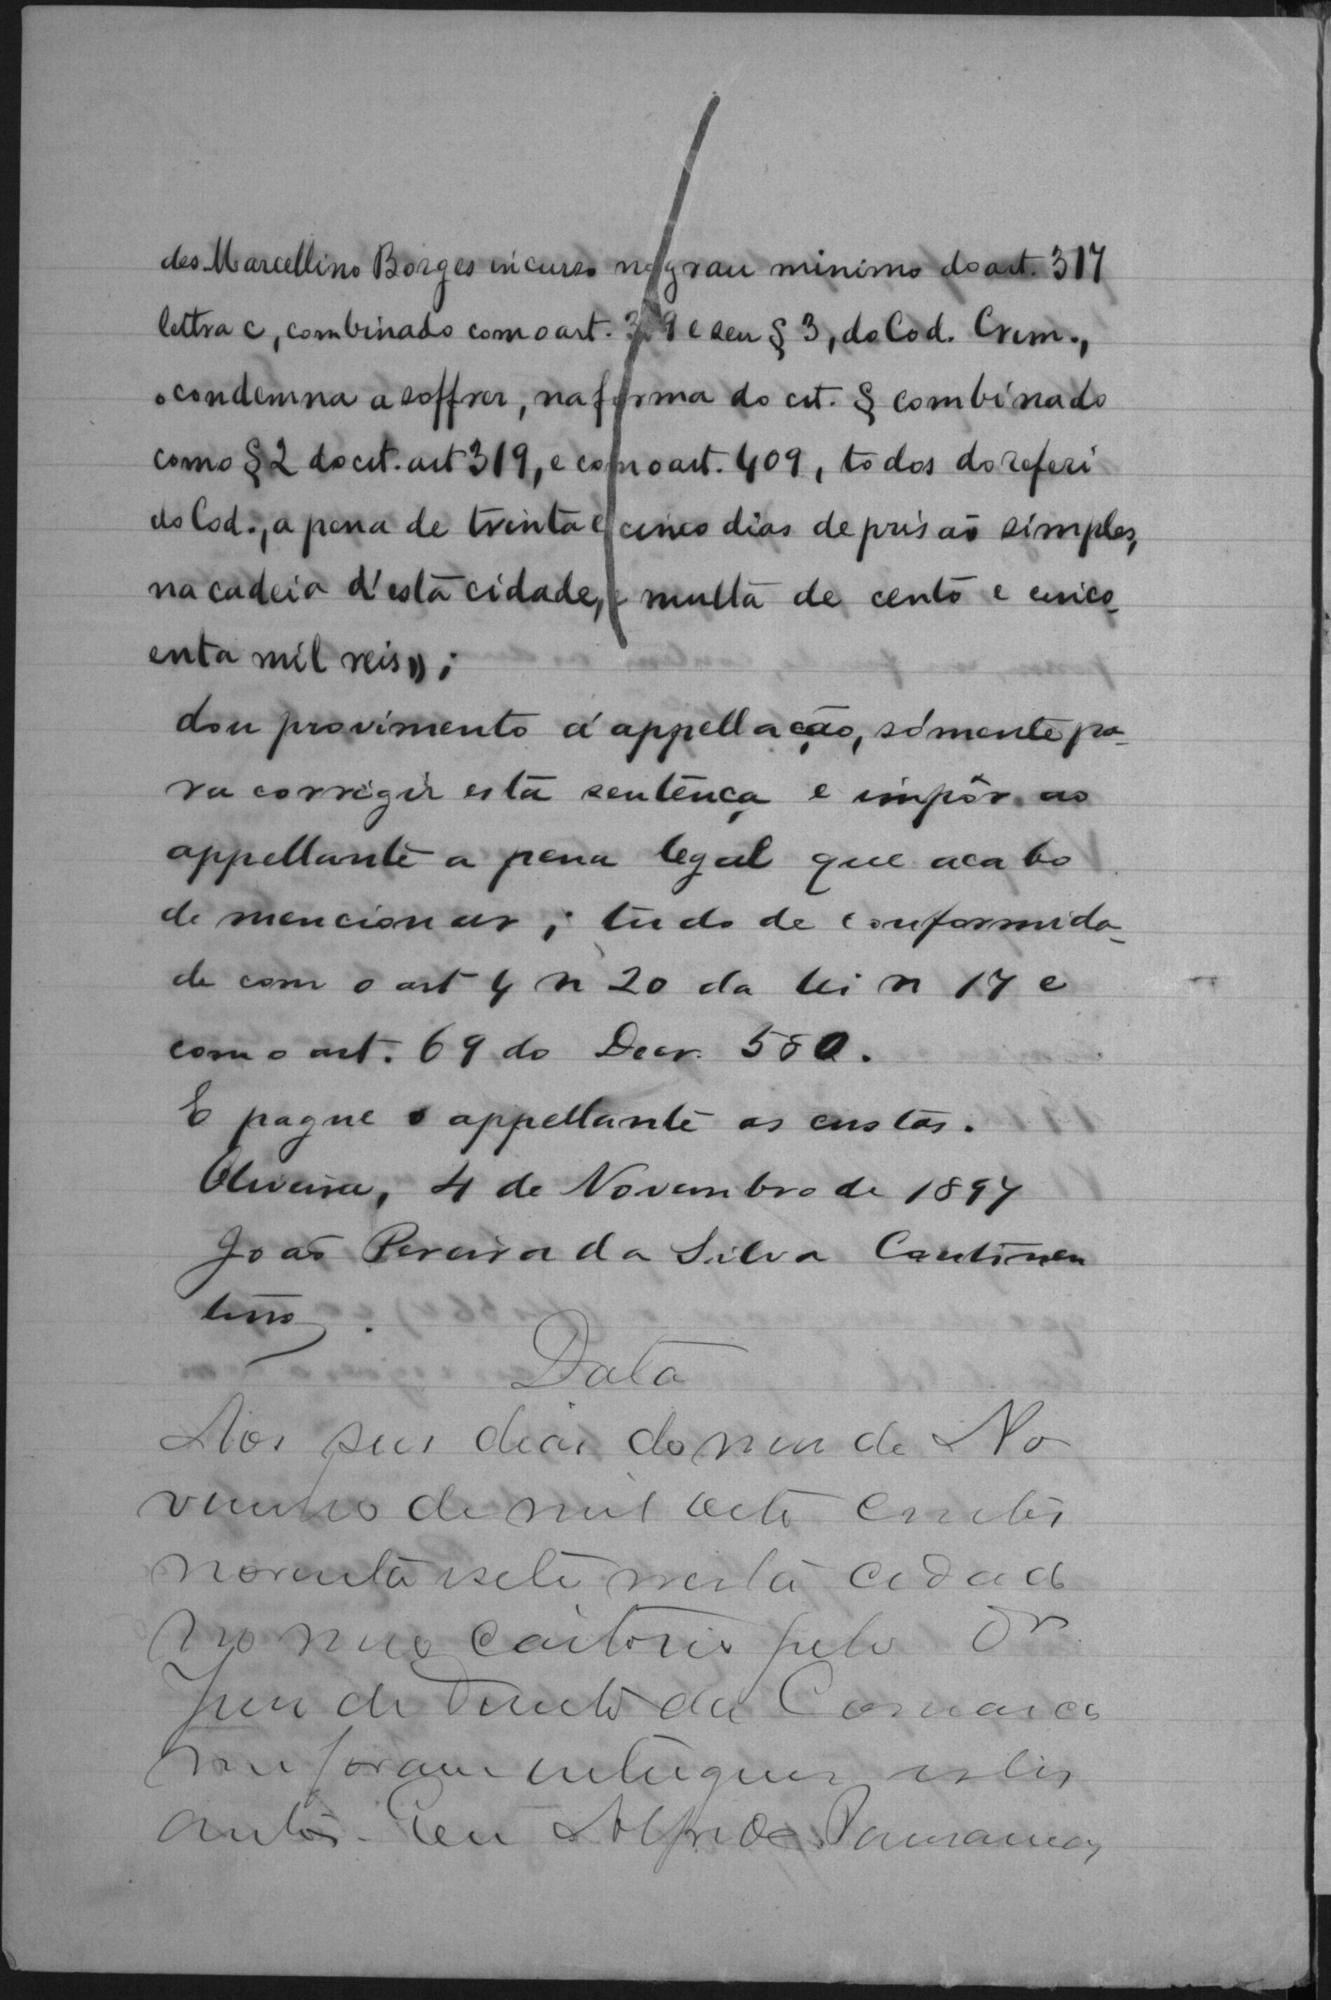 do Marcellino Borges incurso no grau minimo do art. 317
lettra c, combinado com o art. 319 e seu § 3, do Cod. Crim.,
o condemna a soffrer, na forma do cit. § combinado
com o § 2 do cit. art 319, e com o art. 409, todos do referi
do Cod., a pena de trinta e cinco dias de prisão simples,
na cadeia d'esta cidade, e multa de cento e cinco-
enta mil reis»;
dou provimento á appellação, sómente pa-
ra corrigir esta sentença e impôr ao
appellante a pena legal que acabo
de mencionar; tudo de conformida-
de com o art 4 n 20 da lei n 17 e
com o art. 69 do Decr. 580.
E pague o appellante as custas.
Oliveira, 4 de Novembro de 1897
João Pereira da Silva Continen
tino.
Data
Aos seis dias do mes de No
vembro de mil oito centos
noventa e sete nesta cidade
no meo cartorio pelo Dr.
Juiz de Direito da Comarca
me foram entregues estes
autos. Eu Alfredo